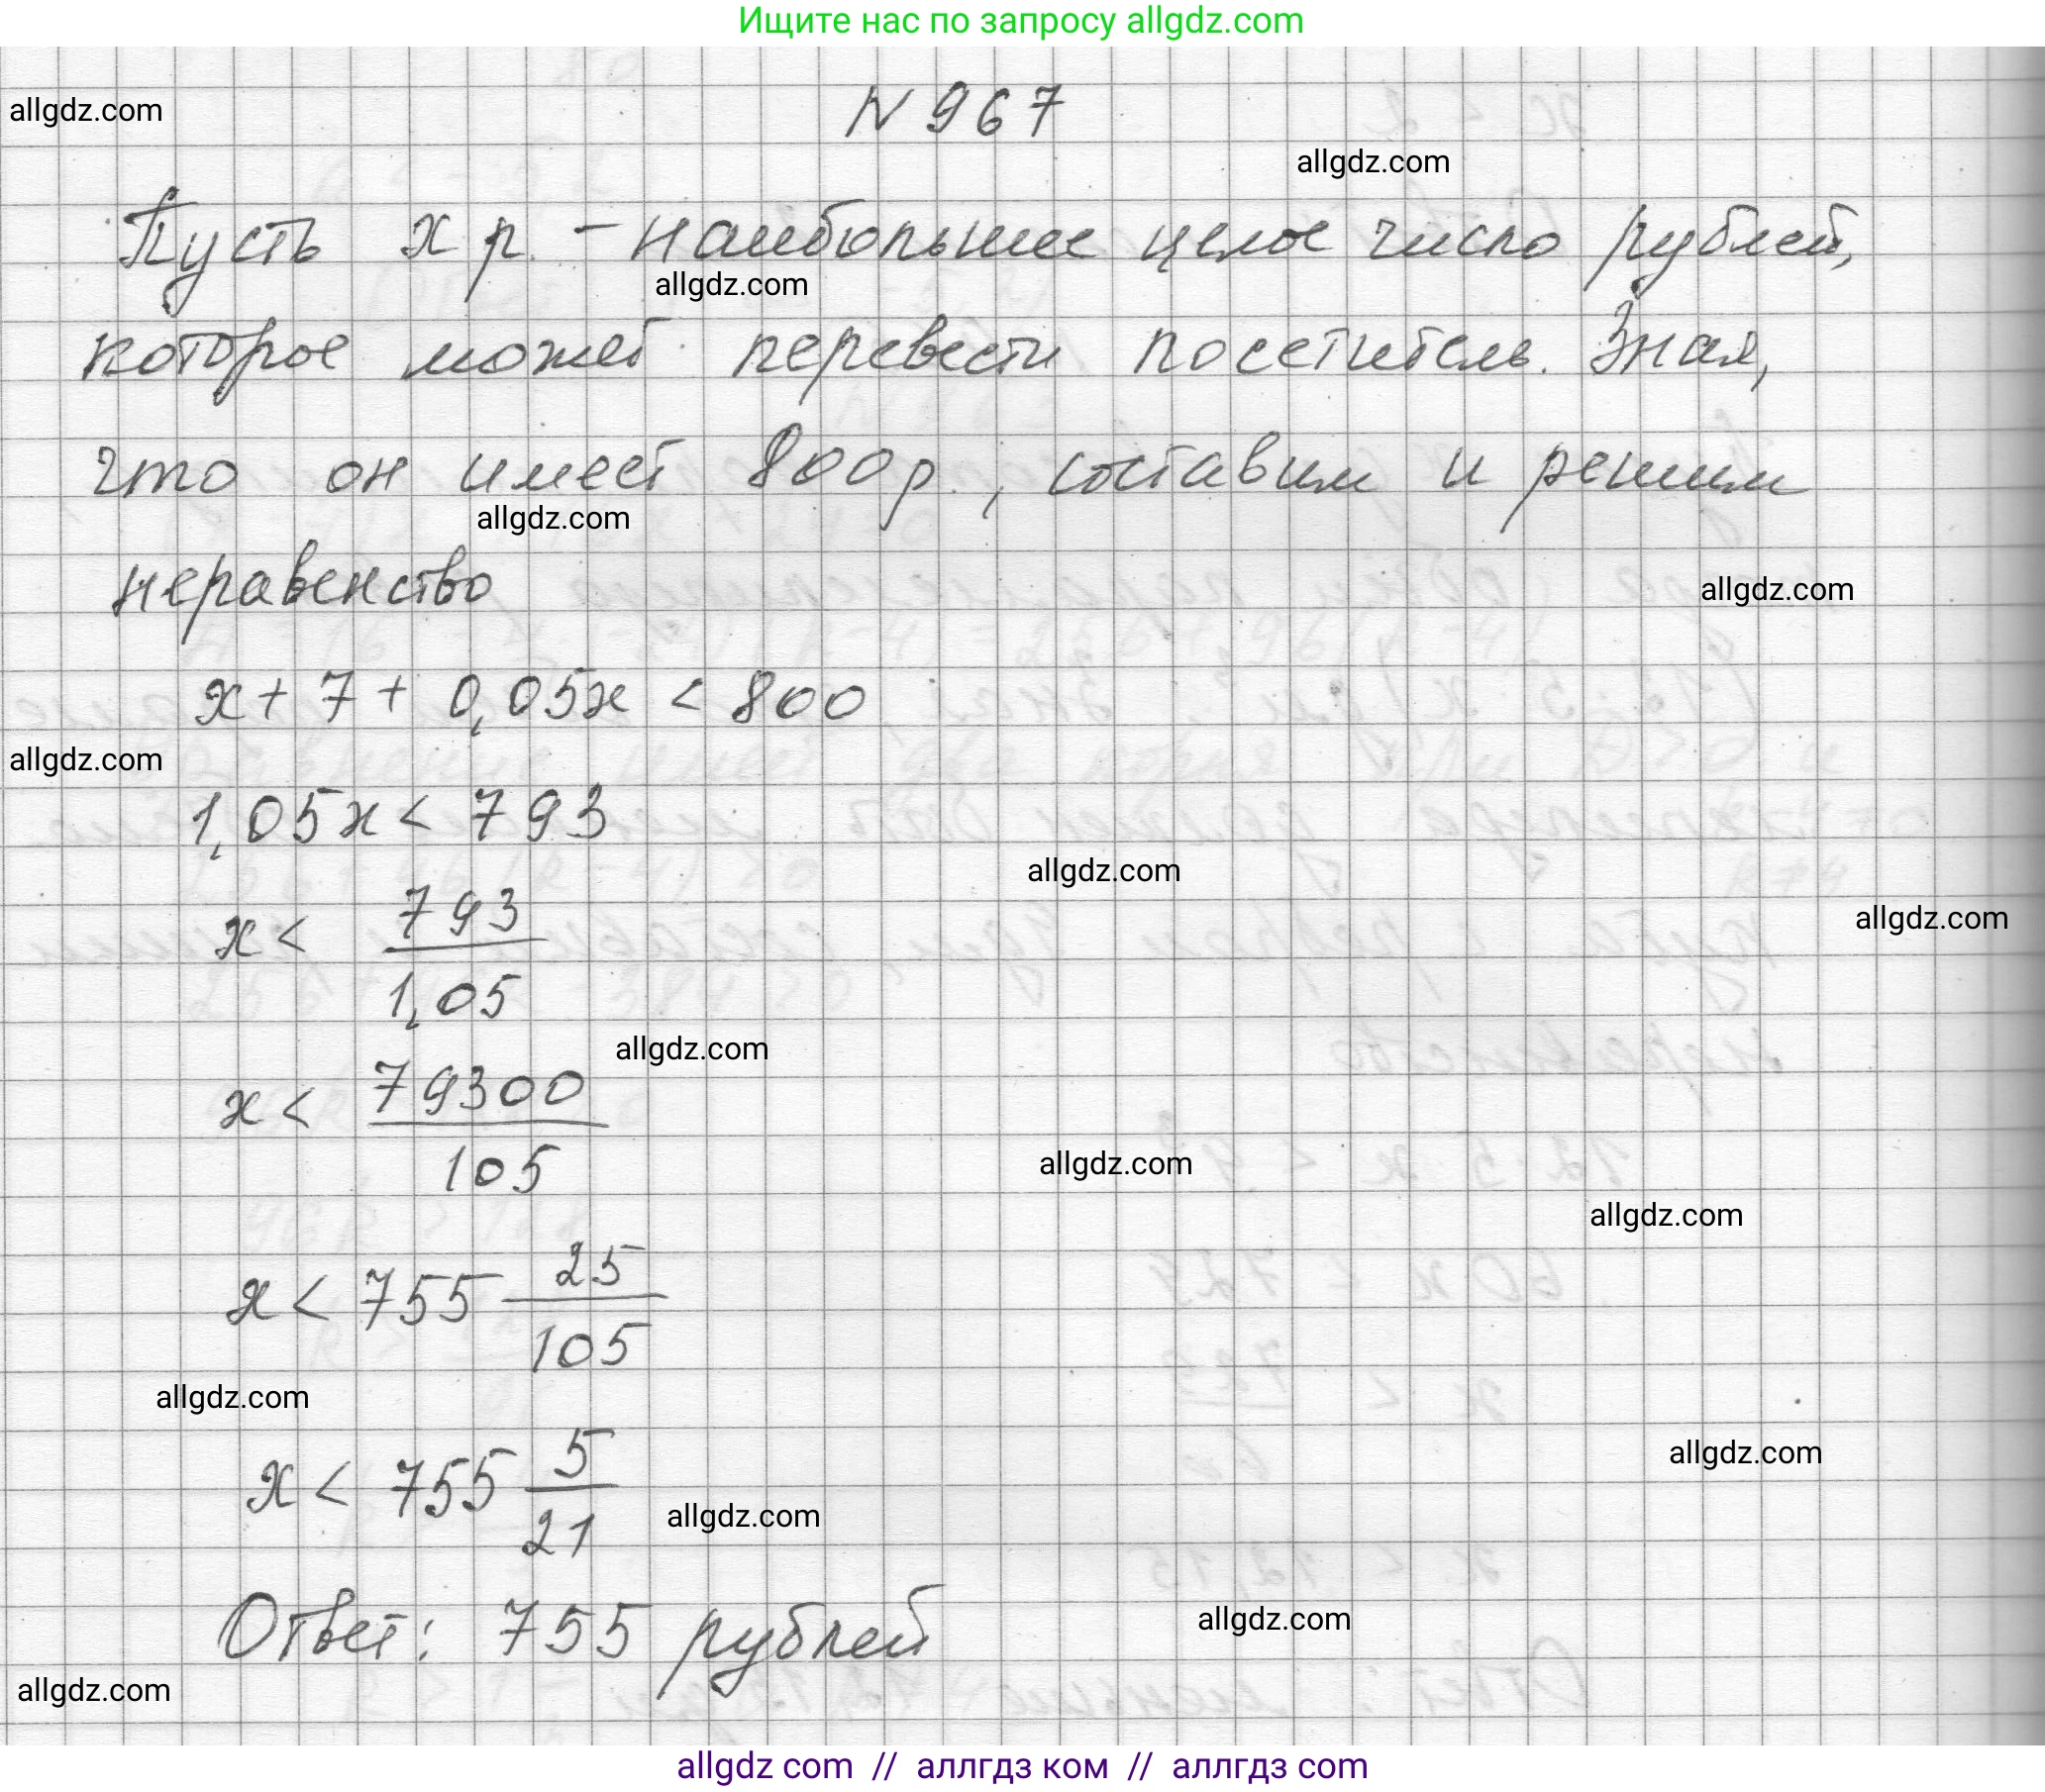 Ищите нас по запросу allgdz.com
allgdz.com
N 967
allgdz.com
Пусть x р. - наибольшее целое число рублей,
allgdz.com
которое может перевести посетитель. Зная,
что он имеет 800 р., составим и решим
allgdz.com
неравенство
allgdz.com
x + 7 + 0,05x < 800
allgdz.com
1,05x < 793
allgdz.com
allgdz.com
x < 793/1,05
allgdz.com
x < 79300/105
allgdz.com
allgdz.com
x < 755 25/105
allgdz.com
allgdz.com
x < 755 5/21
allgdz.com
Ответ: 755 рублей
allgdz.com
allgdz.com
allgdz com // аллгдз ком // аллгдз com